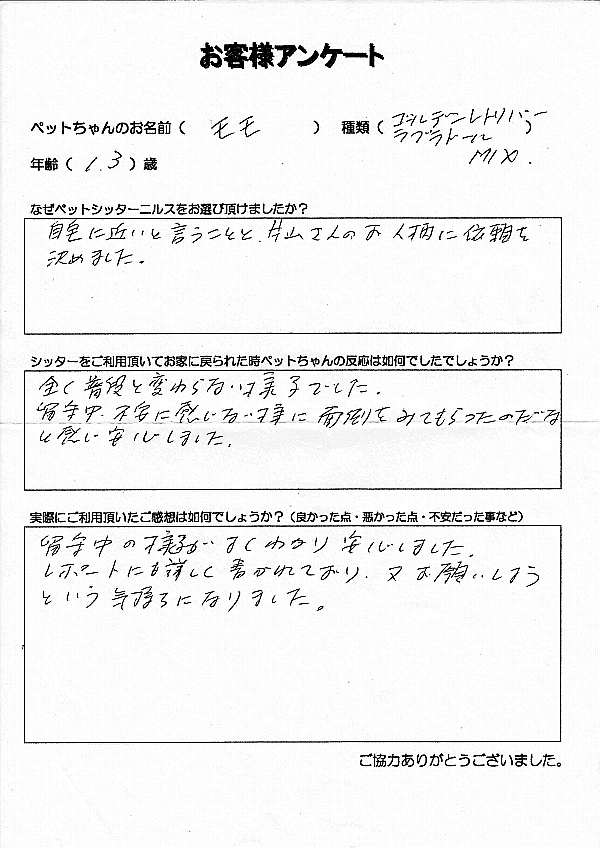 お客様アンケート
ペットちゃんのお名前（ モモ ） 種類（ ゴールデンレトリバー
ラブラドール ）
MIX.
年齢（ 1.3 ）歳
なぜペットシッターニルスをお選び頂けましたか？
自宅に近いと言うことと、片山さんのお人柄に依頼を
決めました。
シッターをご利用頂いてお家に戻られた時ペットちゃんの反応は如何でしたでしょうか？
全く普段と変わらない様子でした。
留守中、不安に感じない様に面倒をみてもらったのだな
と感じ安心しました。
実際にご利用頂いたご感想は如何でしょうか？（良かった点・悪かった点・不安だった事など）
留守中の様子がよくわかり安心しました。
レポートにも詳しく書かれており、又お願いしよう
という気持ちになりました。
ご協力ありがとうございました。